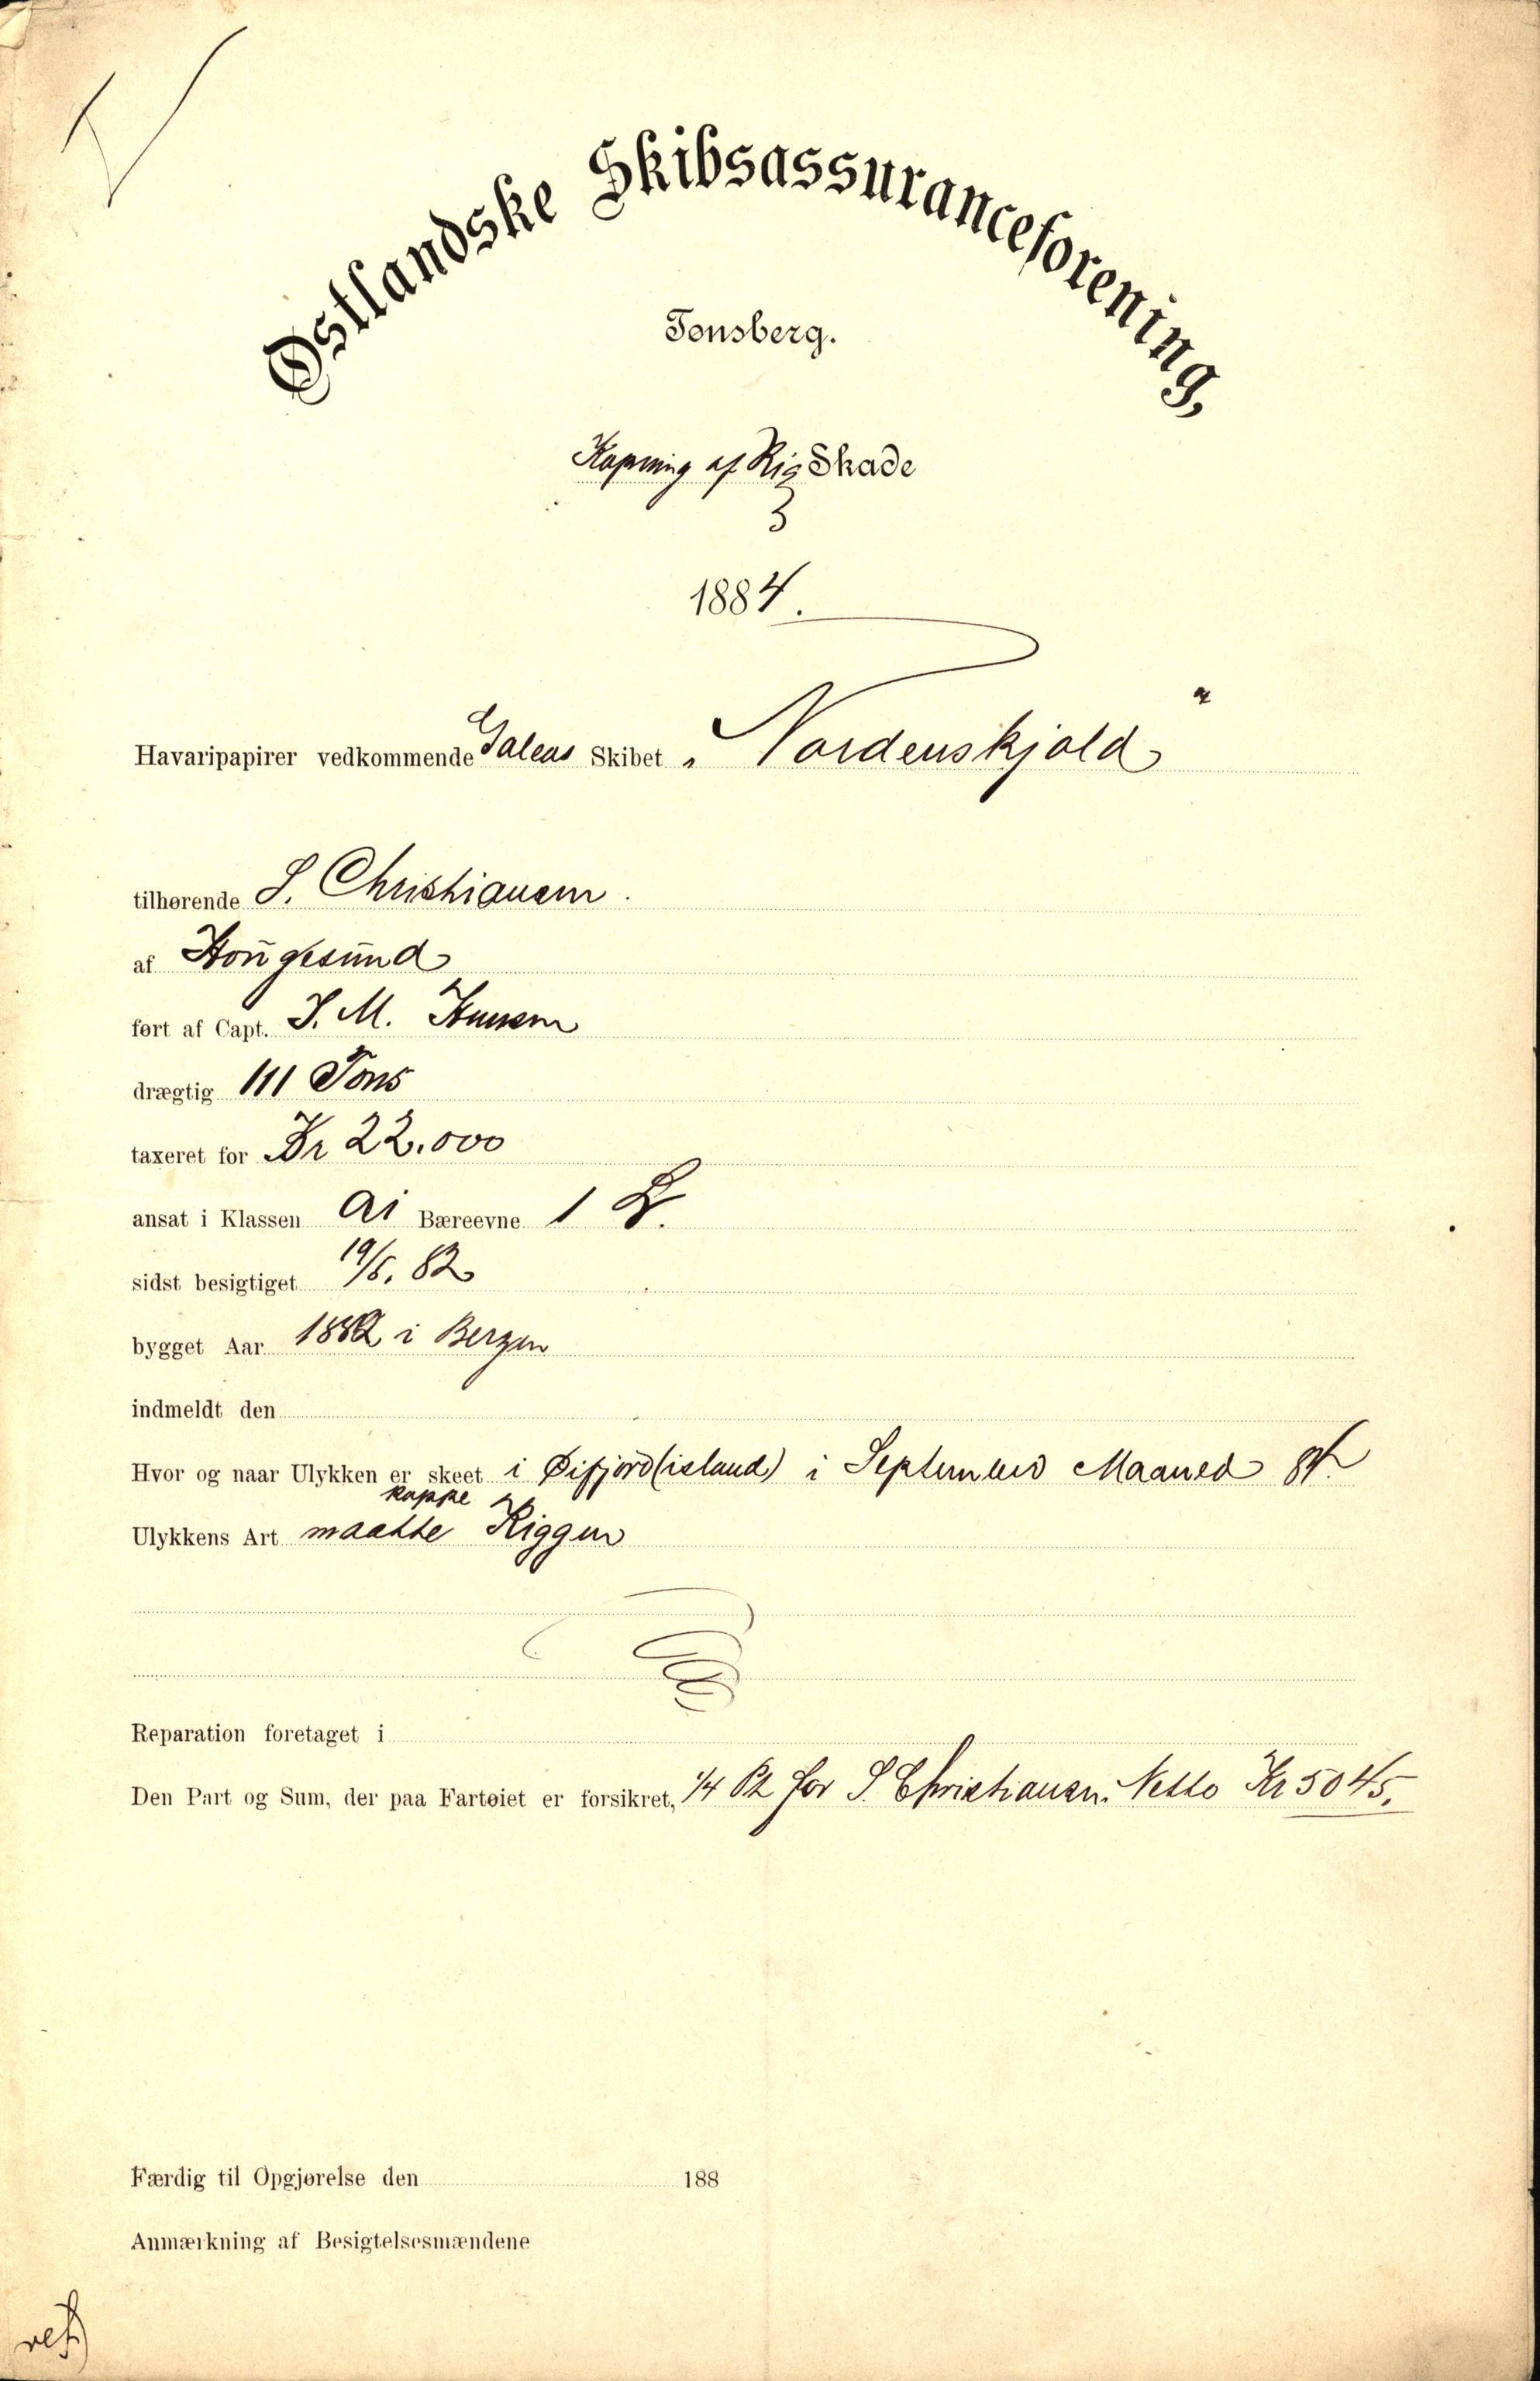 Østlandske Skibsassuranceforening,
Tønsberg.
Kapning af Rig Skade
1884.
Havaripapirer vedkommende Galeas Skibet „Nordenskjold"
tilhørende S. Christiansen.
af Houгesund
ført af Capt. J. M. Hansen
drægtig 111 Tons
taxeret for Kr 22.000
ansat i Klassen A1 Bæreevne 1
sidst besigtiget 19/5. 82
bygget Aar 1882 i Bergen
indmeldt den
Hvor og naar Ulykken er skeet i Øifjord (island) i September Maaned 84.
kappe
Ulykkens Art maatte Riggen
Reparation foretaget i
Den Part og Sum, der paa Fartøiet er forsikret, 1/4 Pt for S. Christiansen. Netto Kr 5045.
Færdig til Opgjørelse den 188
Anmærkning af Besigtelsesmændene